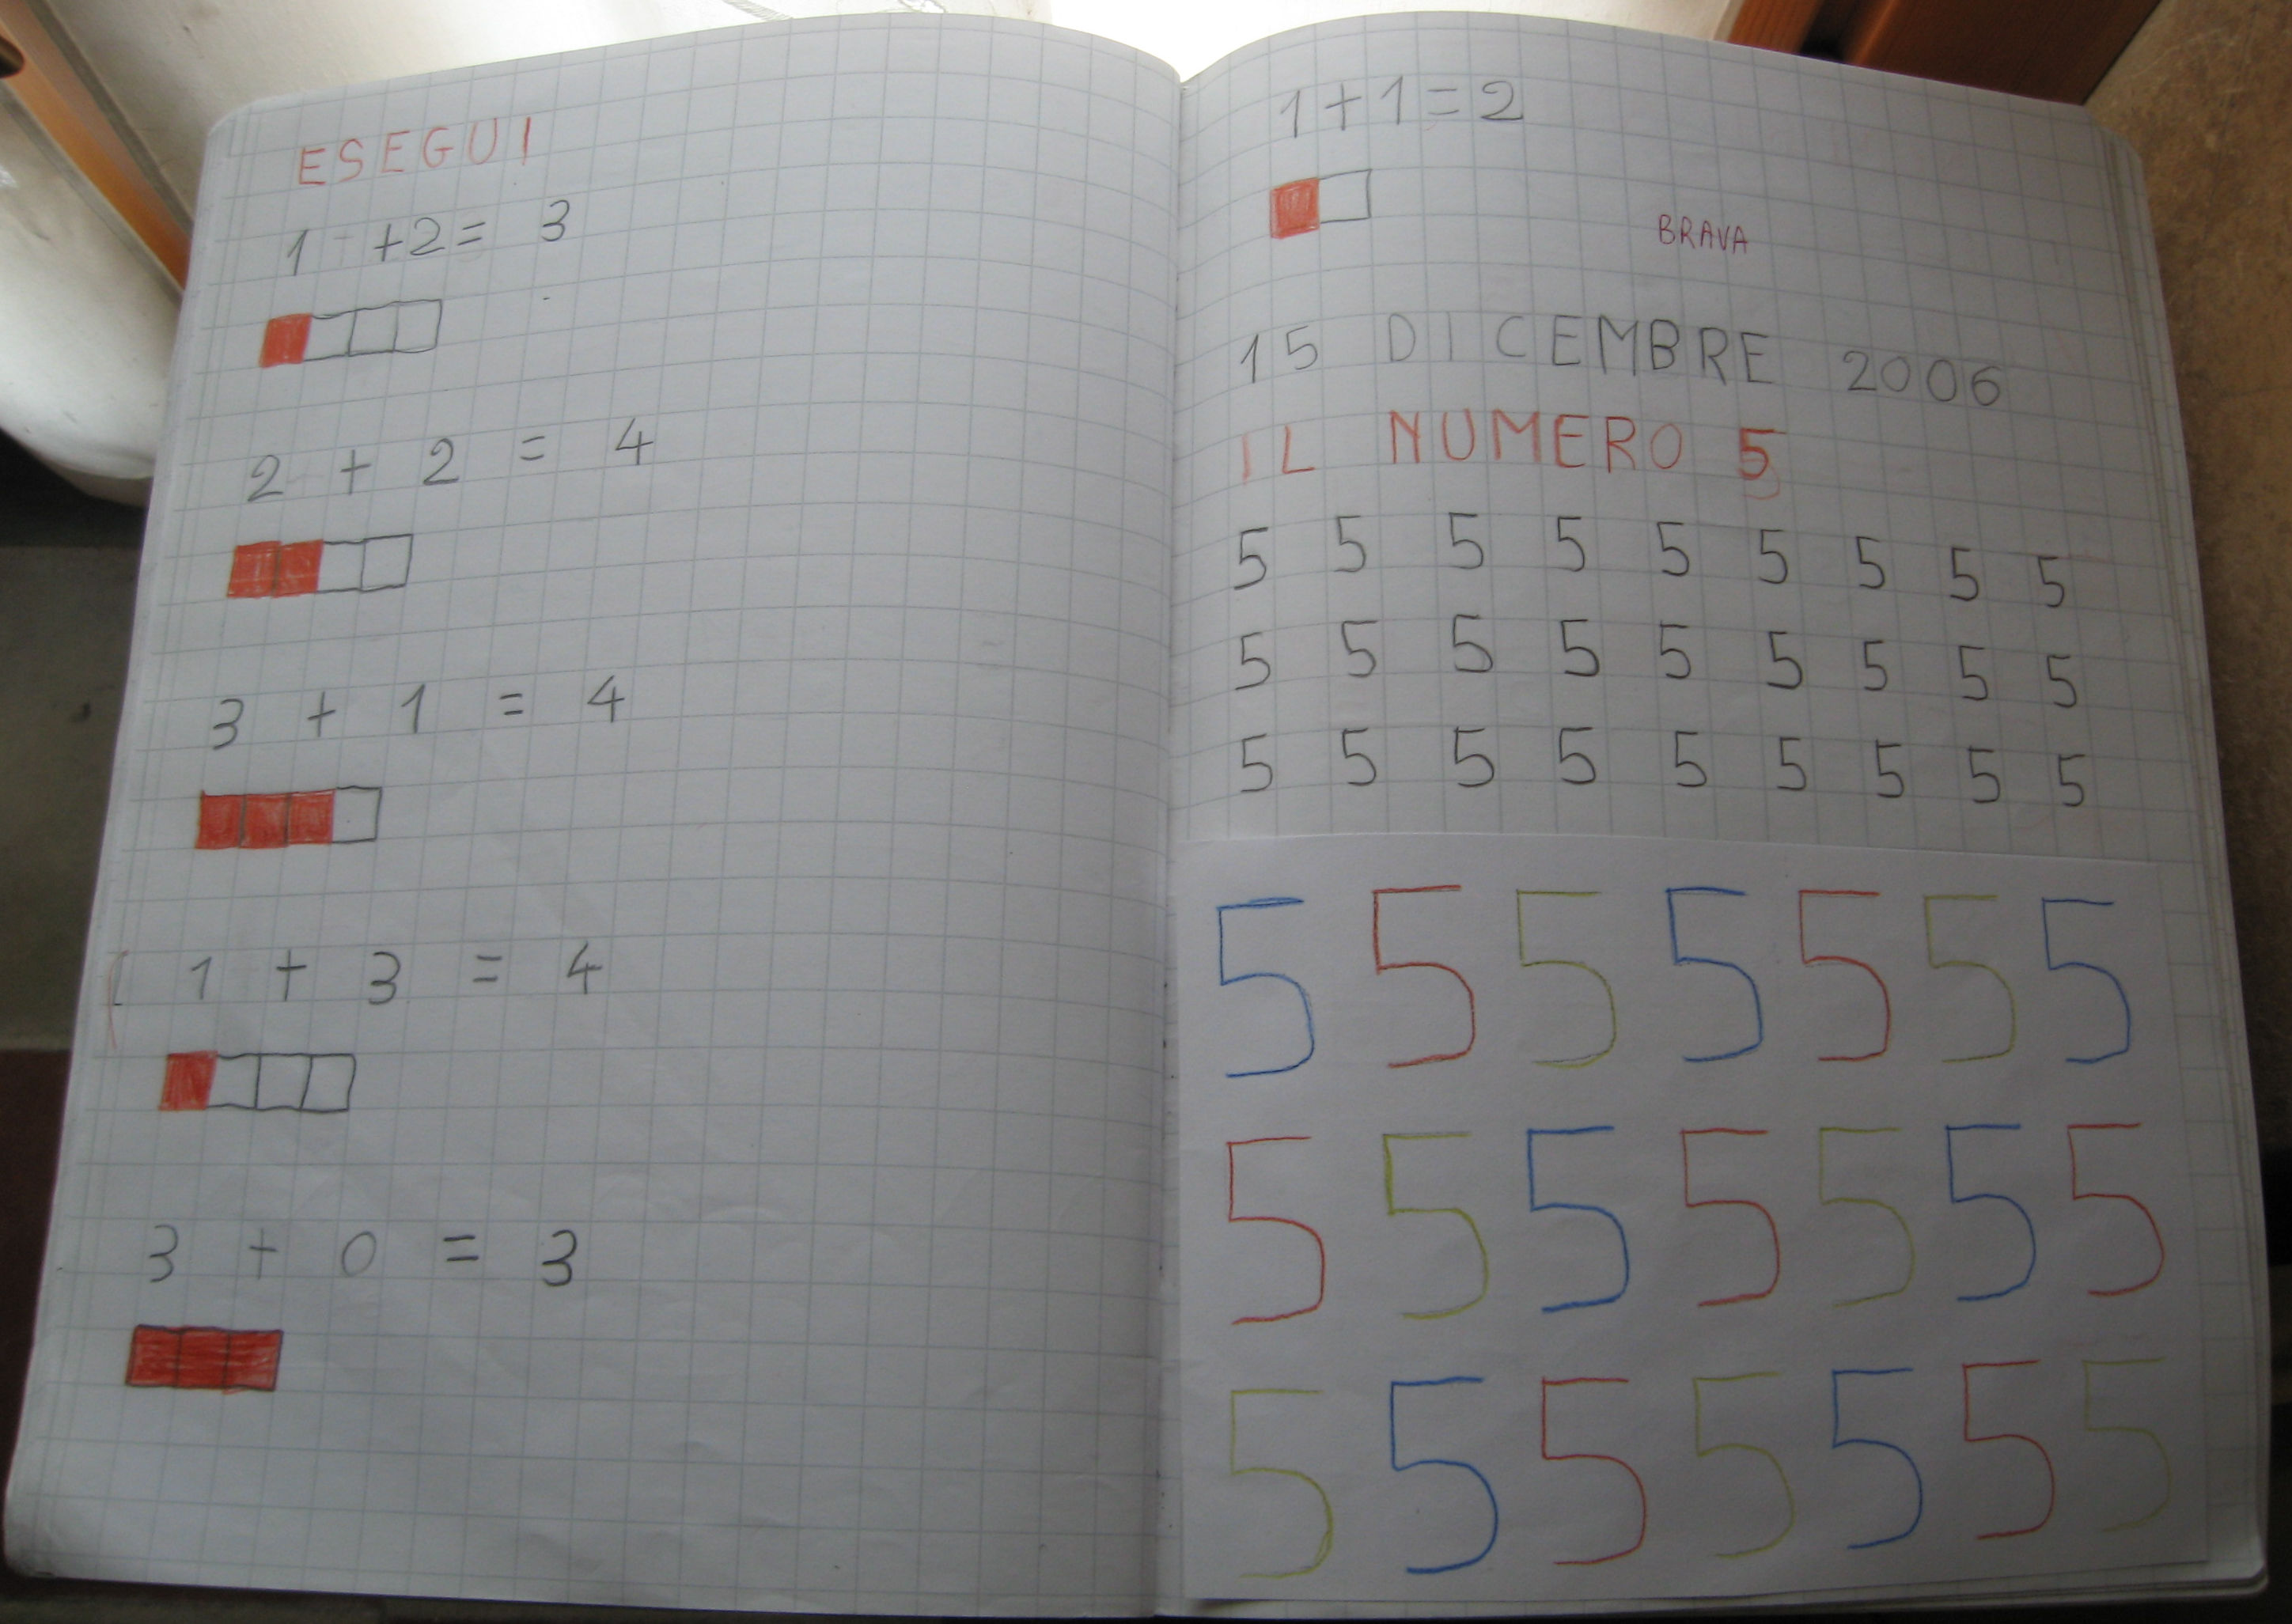 ESEGUI
1 +2= 3
2 + 2 = 4
3 + 1 = 4
1 + 3 = 4
3 + 0 = 3
1+1=2
BRAVA
15 DICEMBRE 2006
IL NUMERO 5
5 5 5 5 5 5 5 5 5
5 5 5 5 5 5 5 5 5
5 5 5 5 5 5 5 5 5
5 5 5 5 5 5 5
5 5 5 5 5 5 5
5 5 5 5 5 5 5